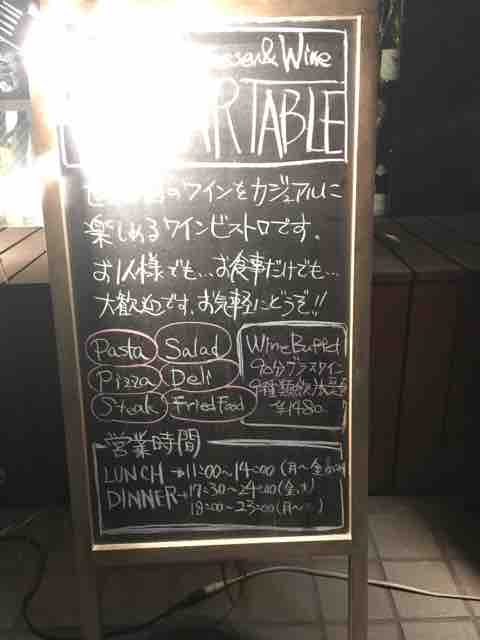 & Wine
TABLE
のワインをカジュアルに
楽しめるワインビストロです。
お1人様でも…お食事だけでも…
大歓迎です。お気軽にどうぞ!!
Pasta Salad
Pizza Deli
Steak Fried Food
Wine Buffet
90分グラスワイン
9種類飲み放題
¥1480
営業時間
LUNCH→11:00~14:00(月~金
DINNER→17:30~24:00(金,土)
18:00~23:00(月~